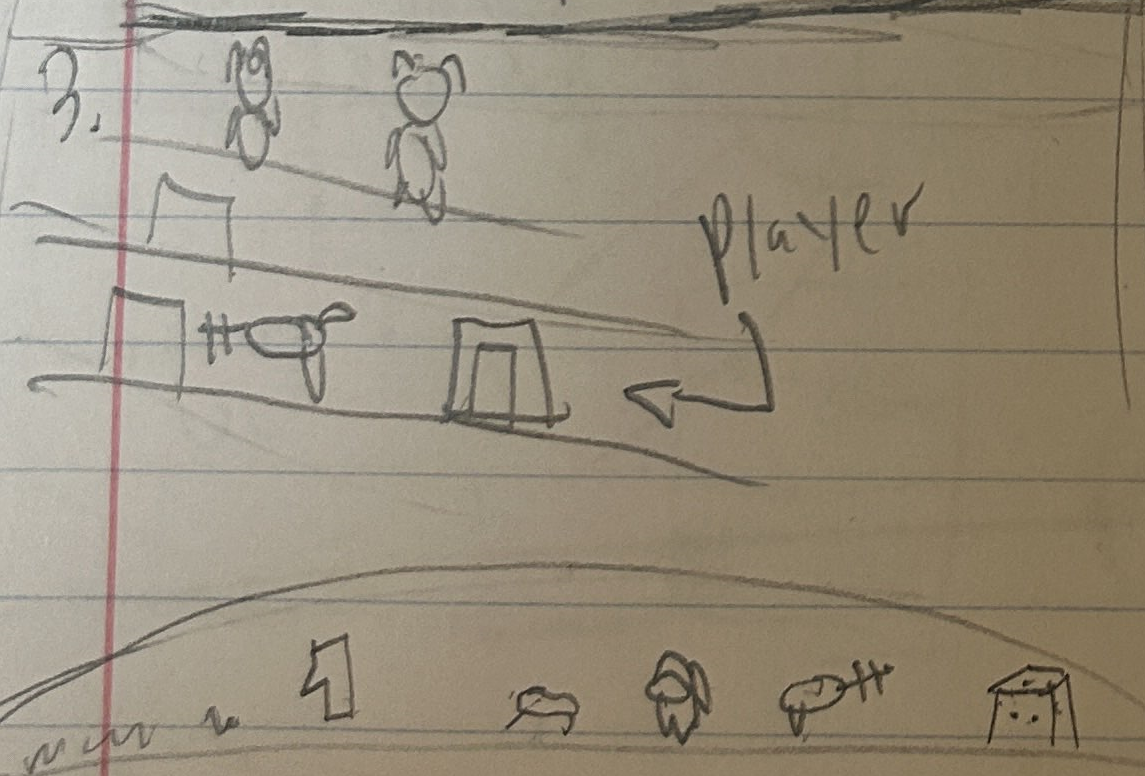 3.
player